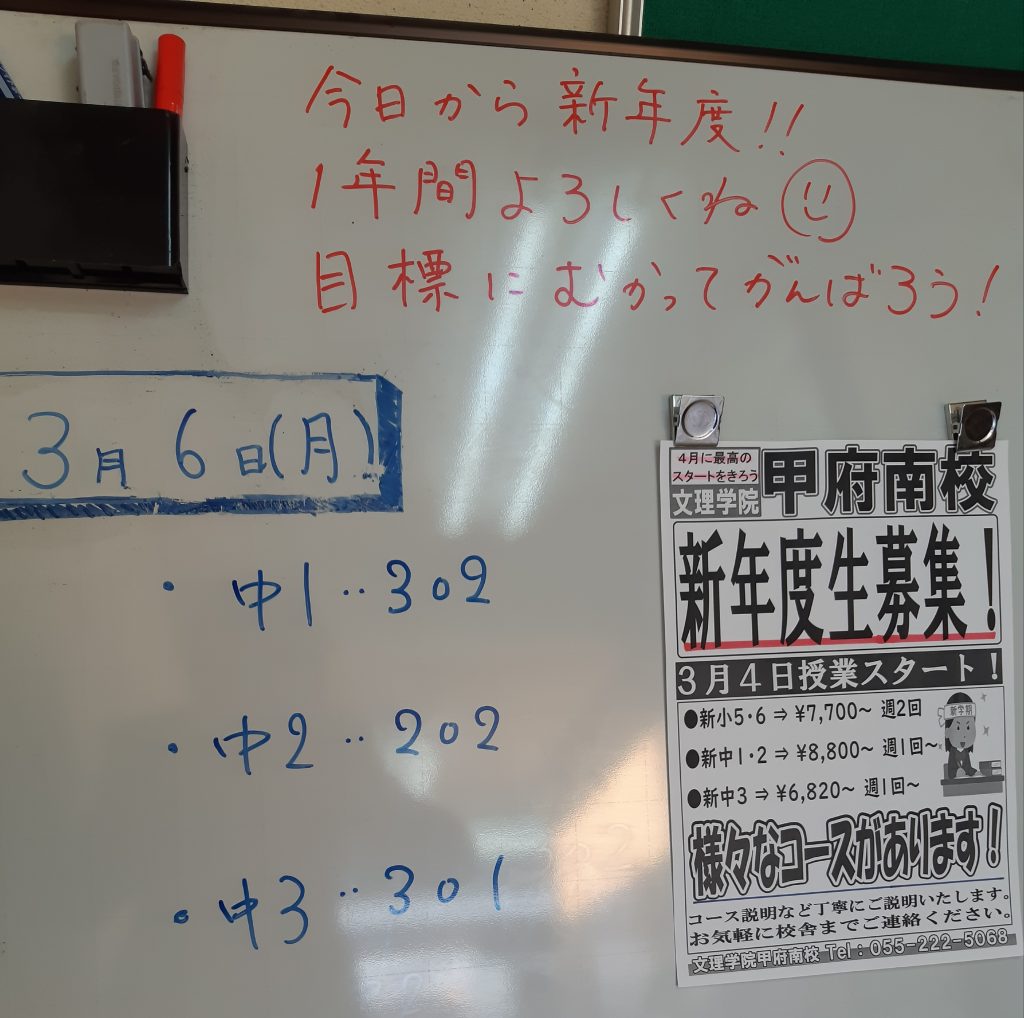 今日から新年度!!
1年間よろしくね
目標にむかってがんばろう!
3月 6日(月)
・中1‥302
・中2‥202
・中3‥301
4月に最高の
スタートをきろう
文理学院 甲府南校
新年度生募集!
3月4日授業スタート!
●新小5・6⇒¥7,700～ 週2回
●新中1・2⇒¥8,800～ 週1回～
●新中3⇒¥6,820～ 週1回～
新学期
様々なコースがあります!
コース説明など丁寧にご説明いたします。
お気軽に校舎までご連絡ください。
文理学院甲府南校 Tel：055-222-5068